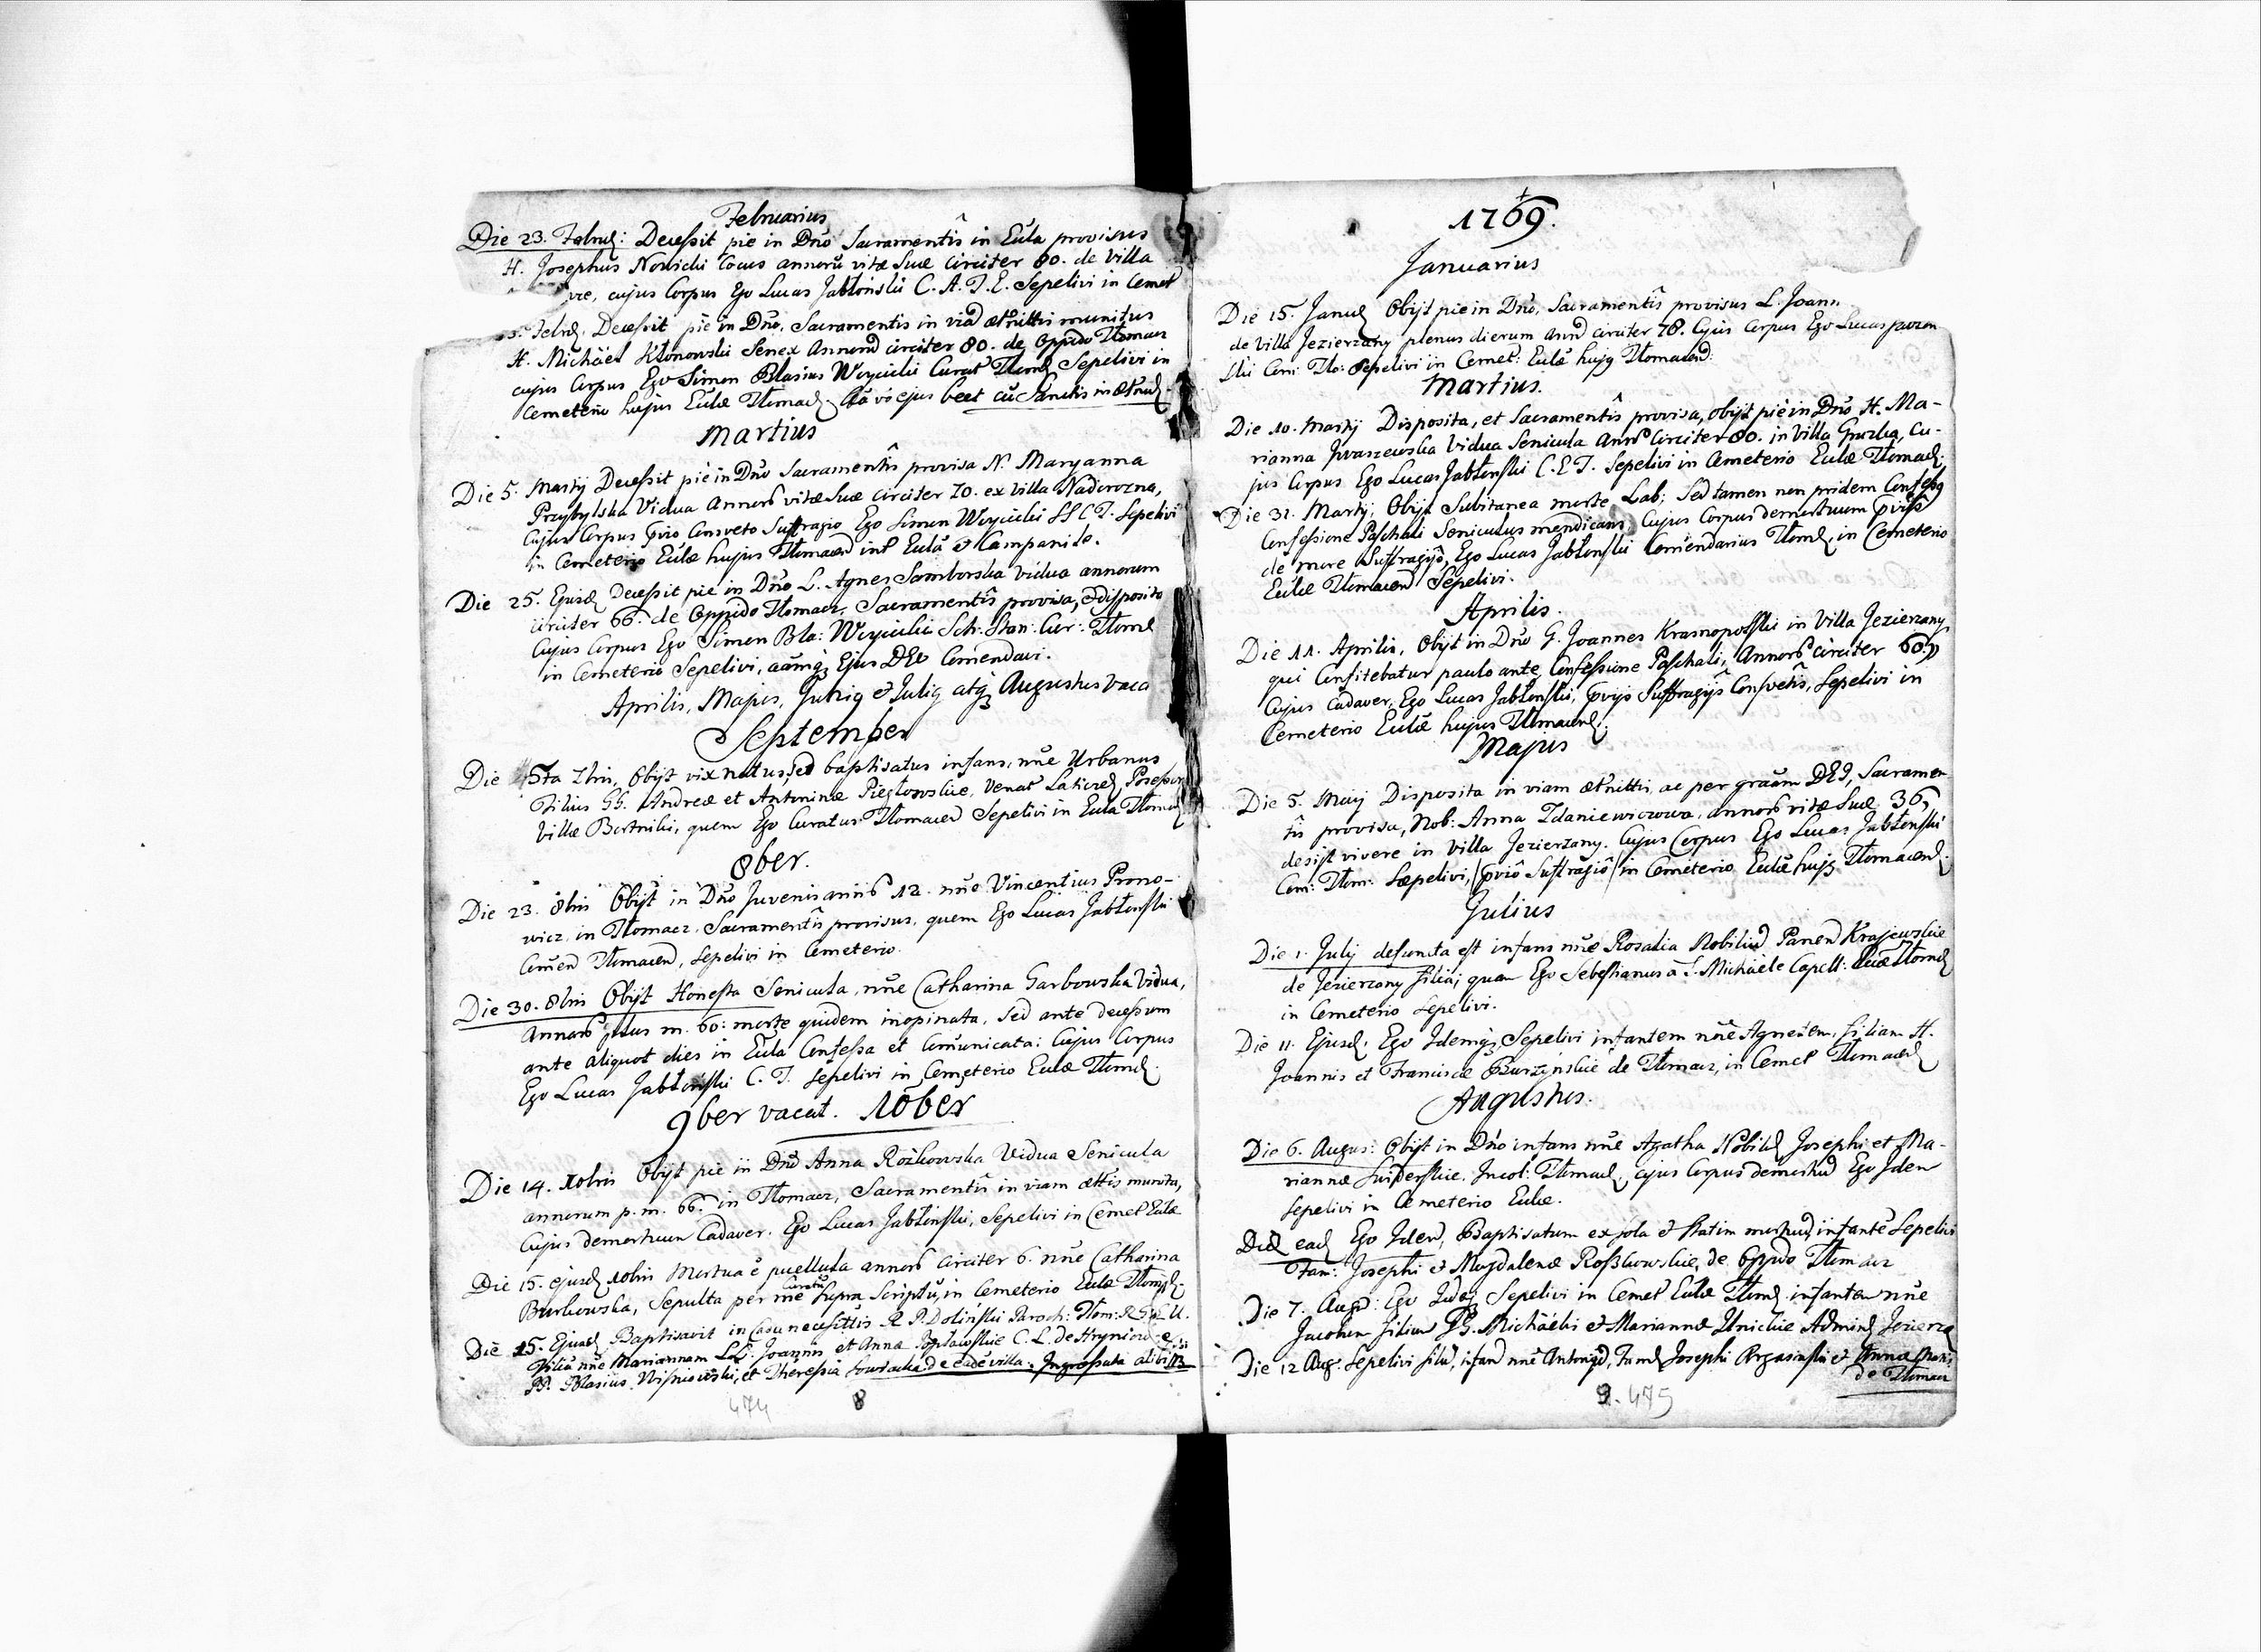 Februarius
Die 23. Febru: Decessit pie in Dno Sacramentis in Eccla provisus
H. Josephus Nowicki Cocus annoru vitæ suæ circiter 80. de villa
cujus Corpus Ego Lucas Jabłoński C. A. T. E. Sepelivi in Cemet
Febr. Decessit pie in Dno, Sacramentis in viã æternittis munitus
H. Michäel Kłonowski Senex Annorũ circiter 80. de Oppido Tłomacz
cujus Corpus Ego Simon Blasius Woycicki Curat Tłom Sepelivi in
Cemeterio hujus Eulæ Tłomac. ejus beet cũ Sanctis in ætern
Martius
Die 5. Martij Decessit pie in Dno Sacramentis provisa N. Maryanna
Przybylska Vidua Annor vitæ suæ circiter 70. ex villa Nadorozna,
Cujus Corpus pvio Consveto Suffragio Ego Simon Woycicki S S C T. Sepelivi
in Cemeterio Eulæ hujus Tłomacen int Eulã & Campanile.
Die 25. Ejusd Decessit pie in Dno L. Agnes Samborska vidua annorum
circiter 66. de Oppido Tłomacz, Sacramentis provisa, & disposita
Cujus Corpus Ego Simon Bla: Woycicki Sch: Stan: Cur: Tłom
in Cemeterio Sepelivi, aãmq; Ejus DEO Comendavi.
Aprilis, Majus, Junig & Julig atq; Augustus vaca
September
Die 5ta 7bris, Obijt vix natus, sed baptisatus infans, nne Urbanus
Filius GG. Andreæ et Antoninæ Piegłowskie, Venat Laticz Posessor
Villæ Bortniki, quem Ego Curatus Tłomacen Sepelivi in Eula Tłomac
8ber.
Die 23. 8bris Obijt in Dno Juvenis annor 12. nne Vincentius Prono-
wicz, in Tłomacz, Sacramentis provisus, quem Ego Lucas Jabłonski
Comen Tłomacen, sepelivi in Cemeterio.
Die 30. 8bris Obijt Honesta Senicula, nne Catharina Garbowska Vidua,
Annor plus m. 60: morte quidem inopinata, sed ante decessum
ante aliquot dies in Eula Confessa et Comunicata: Cujus Corpus
Ego Lucas Jabłoński C. T. sepelivi in Cemeterio Eulæ Tłom.
9ber vacat. 10ber
Die 14. Xobris Obijt pie in Dno Anna Rożkowska Vidua Senicula
annorum p. m. 66. in Tłomacz, Sacramentis in viam ættis munita,
Cujus demortuum Cadaver. Ego Lucas Jabłonski, Sepelivi in Cemet Eulæ
Die 15. ejusd Xobris Mortua ẽ puellula annor circiter 6. nne Catharina
Burkowska, Sepulta per me Curatũ Supra Scriptũ, in Cemeterio Eulæ Tłom.
Die 15. Ejusd Baptisavit in Casu necesittis R. P. Dolinski Paroch: Tłom: R. G. U.
Filiã nne Mariannam LL. Joannis et Anna Popławskie C. L. de Hryniowce
PP. Blasius Wisniowski, et Theressia de eadẽ villa. Ingrossata alibi
474 8
1769.
Januarius
Die 15. Janu Obijt pie in Dno, Sacramentis provisus L. Joann
de Villa Jezierzany plenus dierum Annor circiter 78. Cujus Corpus Ego Lucas
Com: Tło: Sepelivi in Cemet: Eulæ hujg Tłomacen:
Martius.
Die 10. Martij Disposita, et Sacramentis provisa, obijt pie in Dno H. Ma-
rianna Jwaszewska Vidua Senicula Annor Circiter 80. in Villa Gruszka, Cu-
jus Corpus Ego Lucas Jabłonski C. E T. Sepelivi in Cemeterio Eulæ Tłomac.
Die 31. Martij, Obijt Subitanea morte Lab; Sed tamen non pridem Confessg
Confessione Paschali Seniculus mendicans, Cujus Corpus demortuum pviss
de more Suffragijs, Ego Lucas Jabłonski Comendarius Tłom, in Cemeterio
Eulæ Tłomacen Sepelivi.
Aprilis.
Die 11. Aprilis, Obijt in Dno G. Joannes Krasnopolski in Villa Jezierzany,
qui Confitebatur paulo ante Confessione Paschali, Annor circiter 60.
Cujus Cadaver, Ego Lucas Jabłonski, pvijs Suffragijs Consvetis, Sepelivi in
Cemeterio Eulæ hujus Tłomacen.
Majus
Die 5. Maij Disposita in viam æternittis, ac per graãm DEI, Sacramen-
tis provisa, Nob: Anna Zdaniewiczowa, annor vitæ suæ 36,
desijt vivere in villa Jezierzany. Cujus Corpus Ego Lucas Jabłonski
Com: Tłom: Sæpelivi, /pviõ Suffragiõ/ in Cemeterio Eulæ hujg Tłomacen.
Julius
Die 1. Julij defuncta est infans nne Rosalia Nobiliũ Panen Krajewskie
de Jezierzany filia; quam Ego Sebestianus a S. Michäele Capell: Eulæ Tłom
in Cemeterio Sepelivi.
Die 11. Ejusd. Ego Idemq; Sepelivi infantem nne Agnetem, filiam H.
Joannis et Franciscæ Burzynskie de Tłomacz, in Cemet Tłomacen
Augustus.
Die 6. Augus: Obijt in Dno infans nne Agatha Nobilũ Josephi et Ma-
riannæ Swiderskie. Incol: Tłomac, cujus Corpus demortuũ Ego Idem
Sepelivi in Cemeterio Eulæ.
Die ead Ego Idem, Baptisatum ex sola & statim mortuũ infantẽ Sepelivi
Fam: Josephi & Magdalenæ Roszkowskie, de Oppido Tłomacz
Die 7. Aug: Ego Idẽq; Sepelivi in Cemet Eulæ Tłom infantem nne
Jacobum filium GG. Michäelis & Mariannæ Ilnickie Admin Jezierza
Die 12 Aug. Sepelivi filiũ, infan nne Antoniũ, Fam Josephi & Anna
de Tłomacz
9. 475